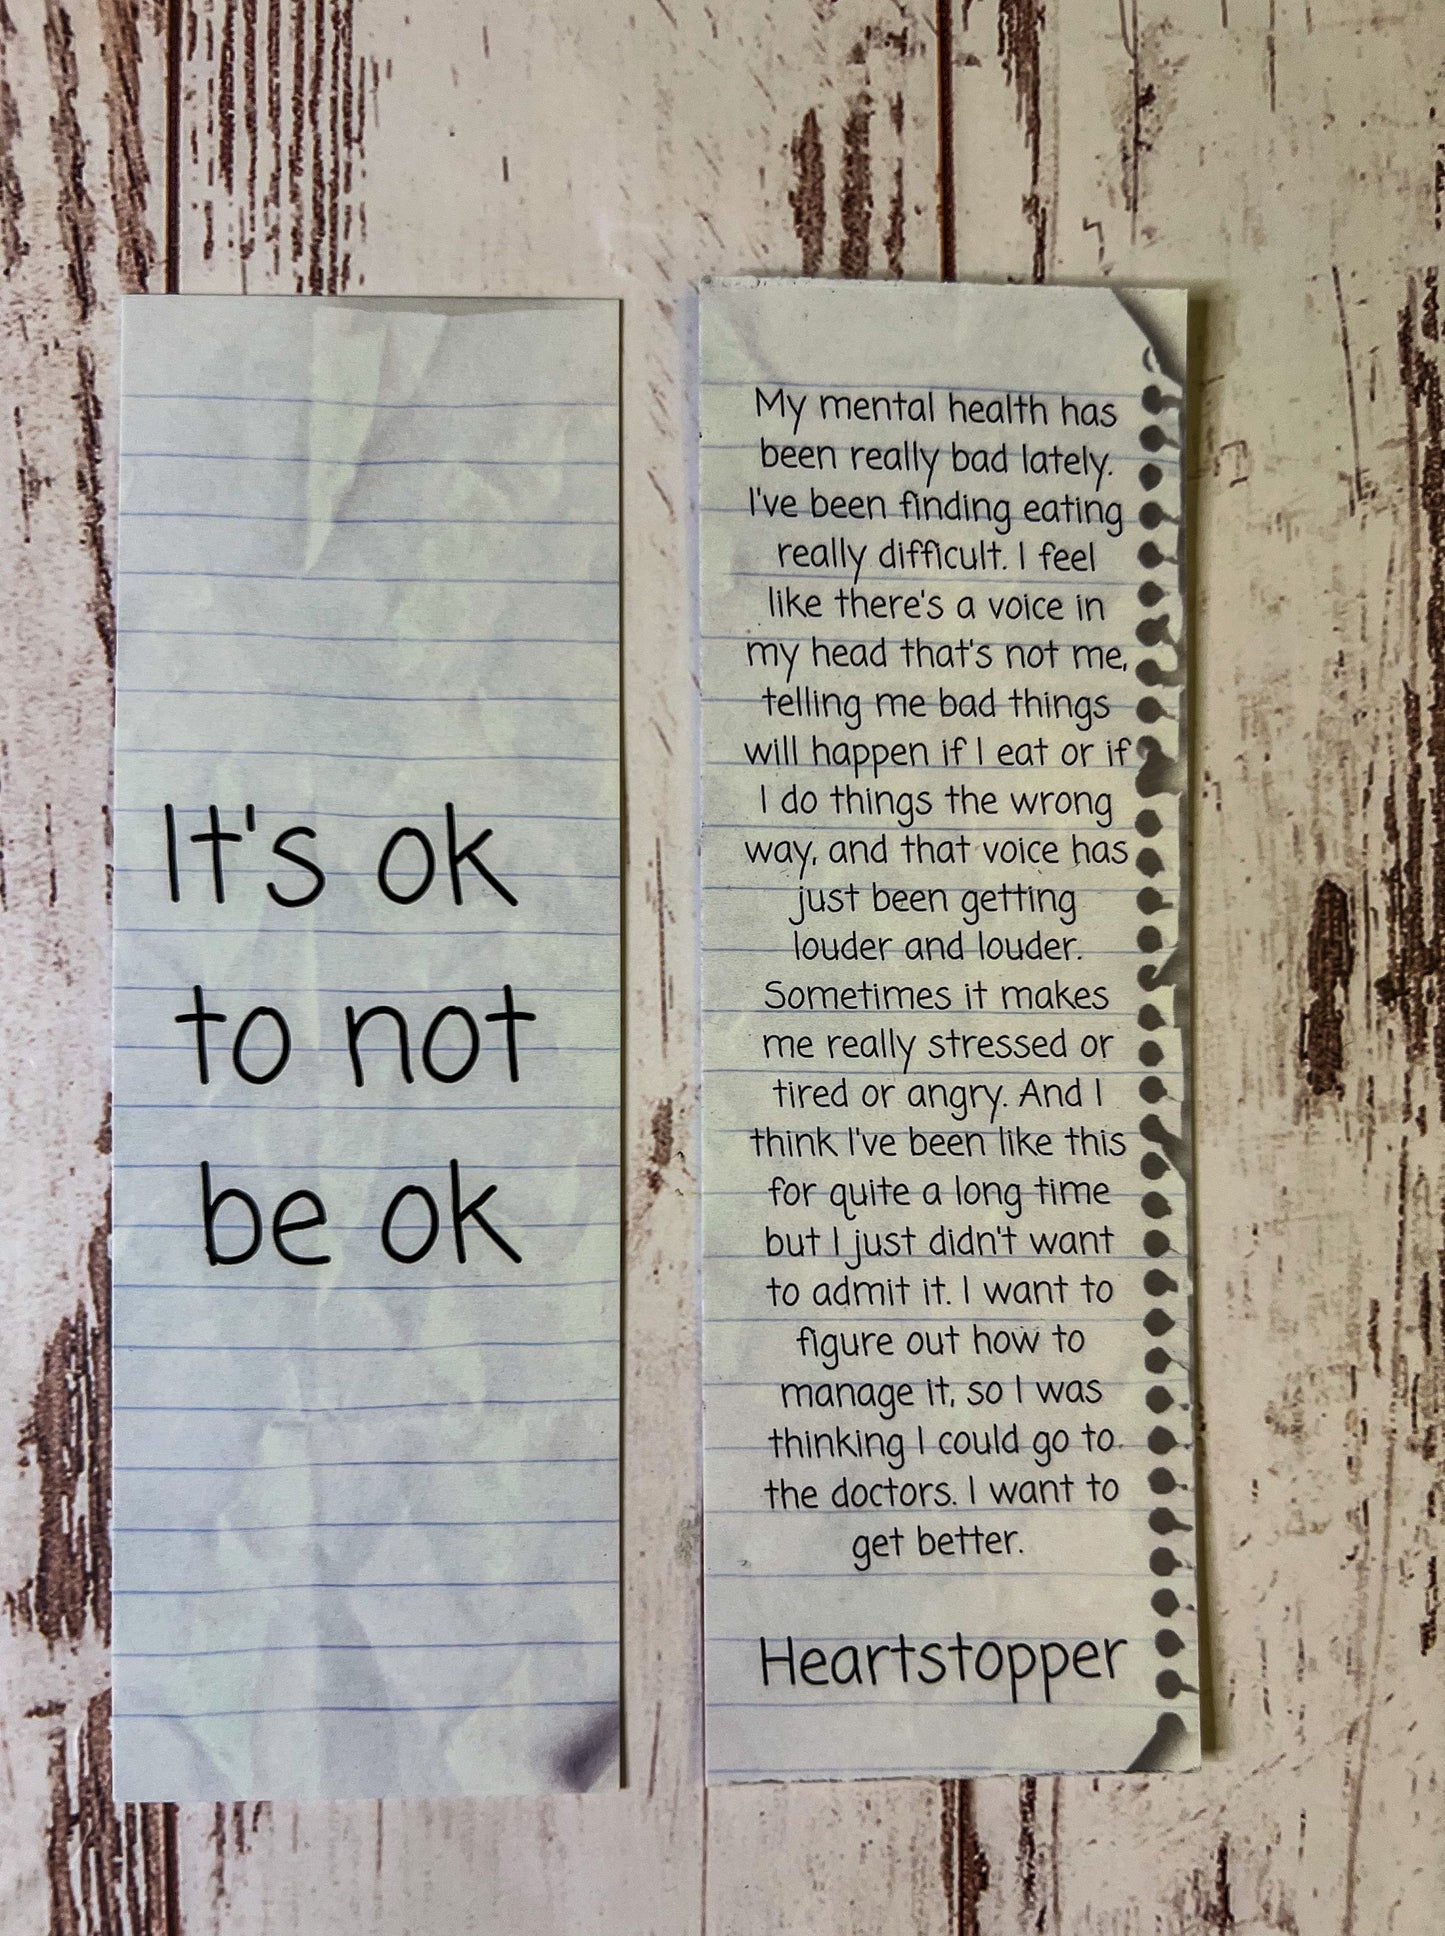 It's ok
to not
be ok
My mental health has
been really bad lately.
I've been finding eating
really difficult. I feel
like there's a voice in
my head that's not me,
telling me bad things
will happen if I eat or if
I do things the wrong
way, and that voice has
just been getting
louder and louder.
Sometimes it makes
me really stressed or
tired or angry. And I
think I've been like this
for quite a long time
but I just didn't want
to admit it. I want to
figure out how to
manage it, so I was
thinking I could go to
the doctors. I want to
get better.
Heartstopper